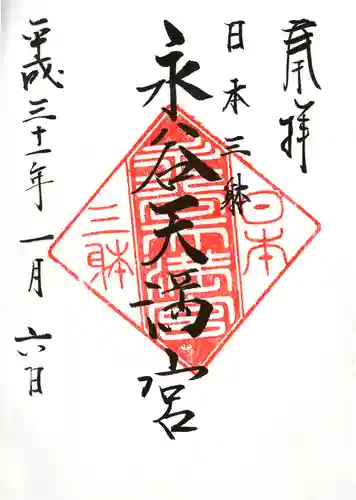 奉拝
日本三躰
永谷天満宮
平成三十一年一月六日
日本
三躰